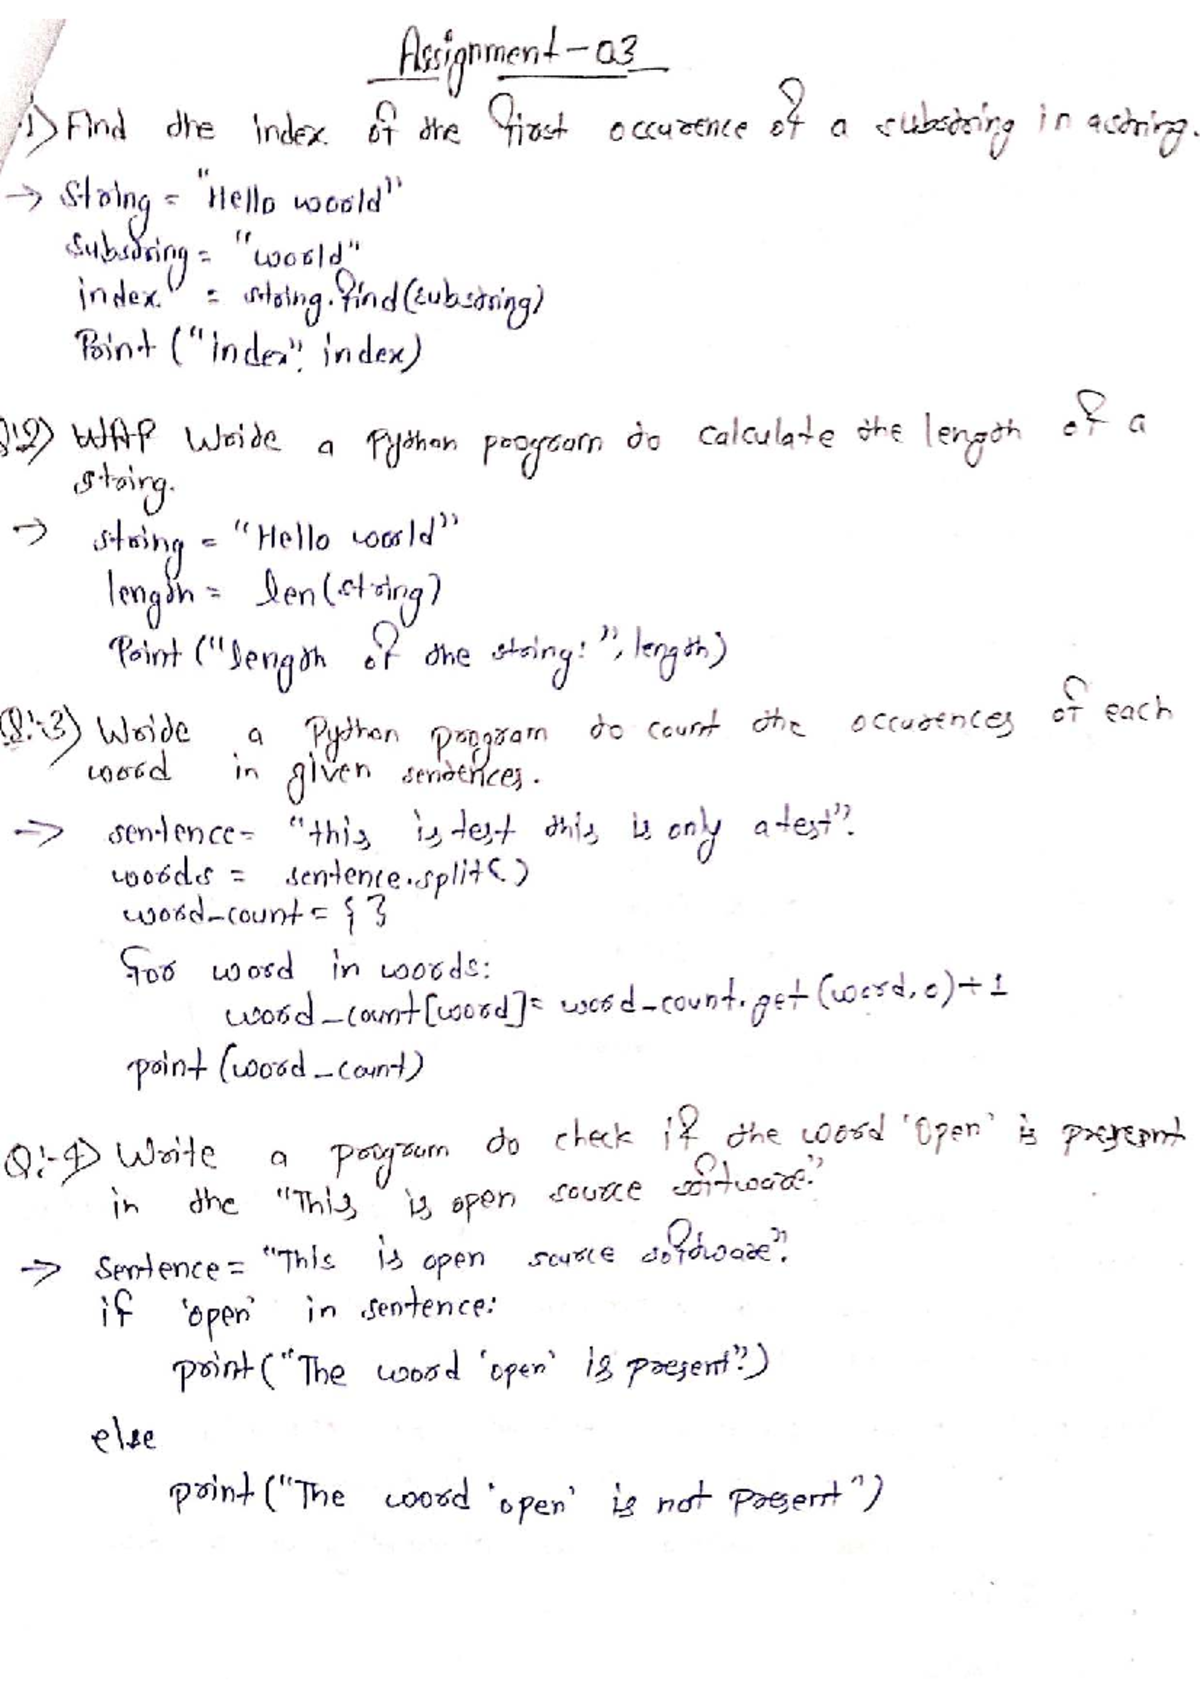 Assignment-03
1) Find the index of the first occurence of a substring in a string.
→ String = "Hello world"
Substring = "world"
index = string.find(substring)
Print ("index", index)
Q:2) WAP Write a Python program to calculate the length of a
string.
→ string = "Hello world"
length = len(string)
Print ("length of the string:", length)
Q:-3) Write a Python program to count the occurences of each
word in given sentences.
→ sentence = "this is test this is only a test".
words = sentence.split()
word_count = { }
for word in words:
word_count[word] = word_count.get(word, 0)+1
print (word_count)
Q:-4) Write a program to check if the word 'Open' is present
in the "This is open source software."
→ Sentence = "This is open source software".
if 'open' in sentence:
print ("The word 'open' is present")
else
print ("The word 'open' is not present")